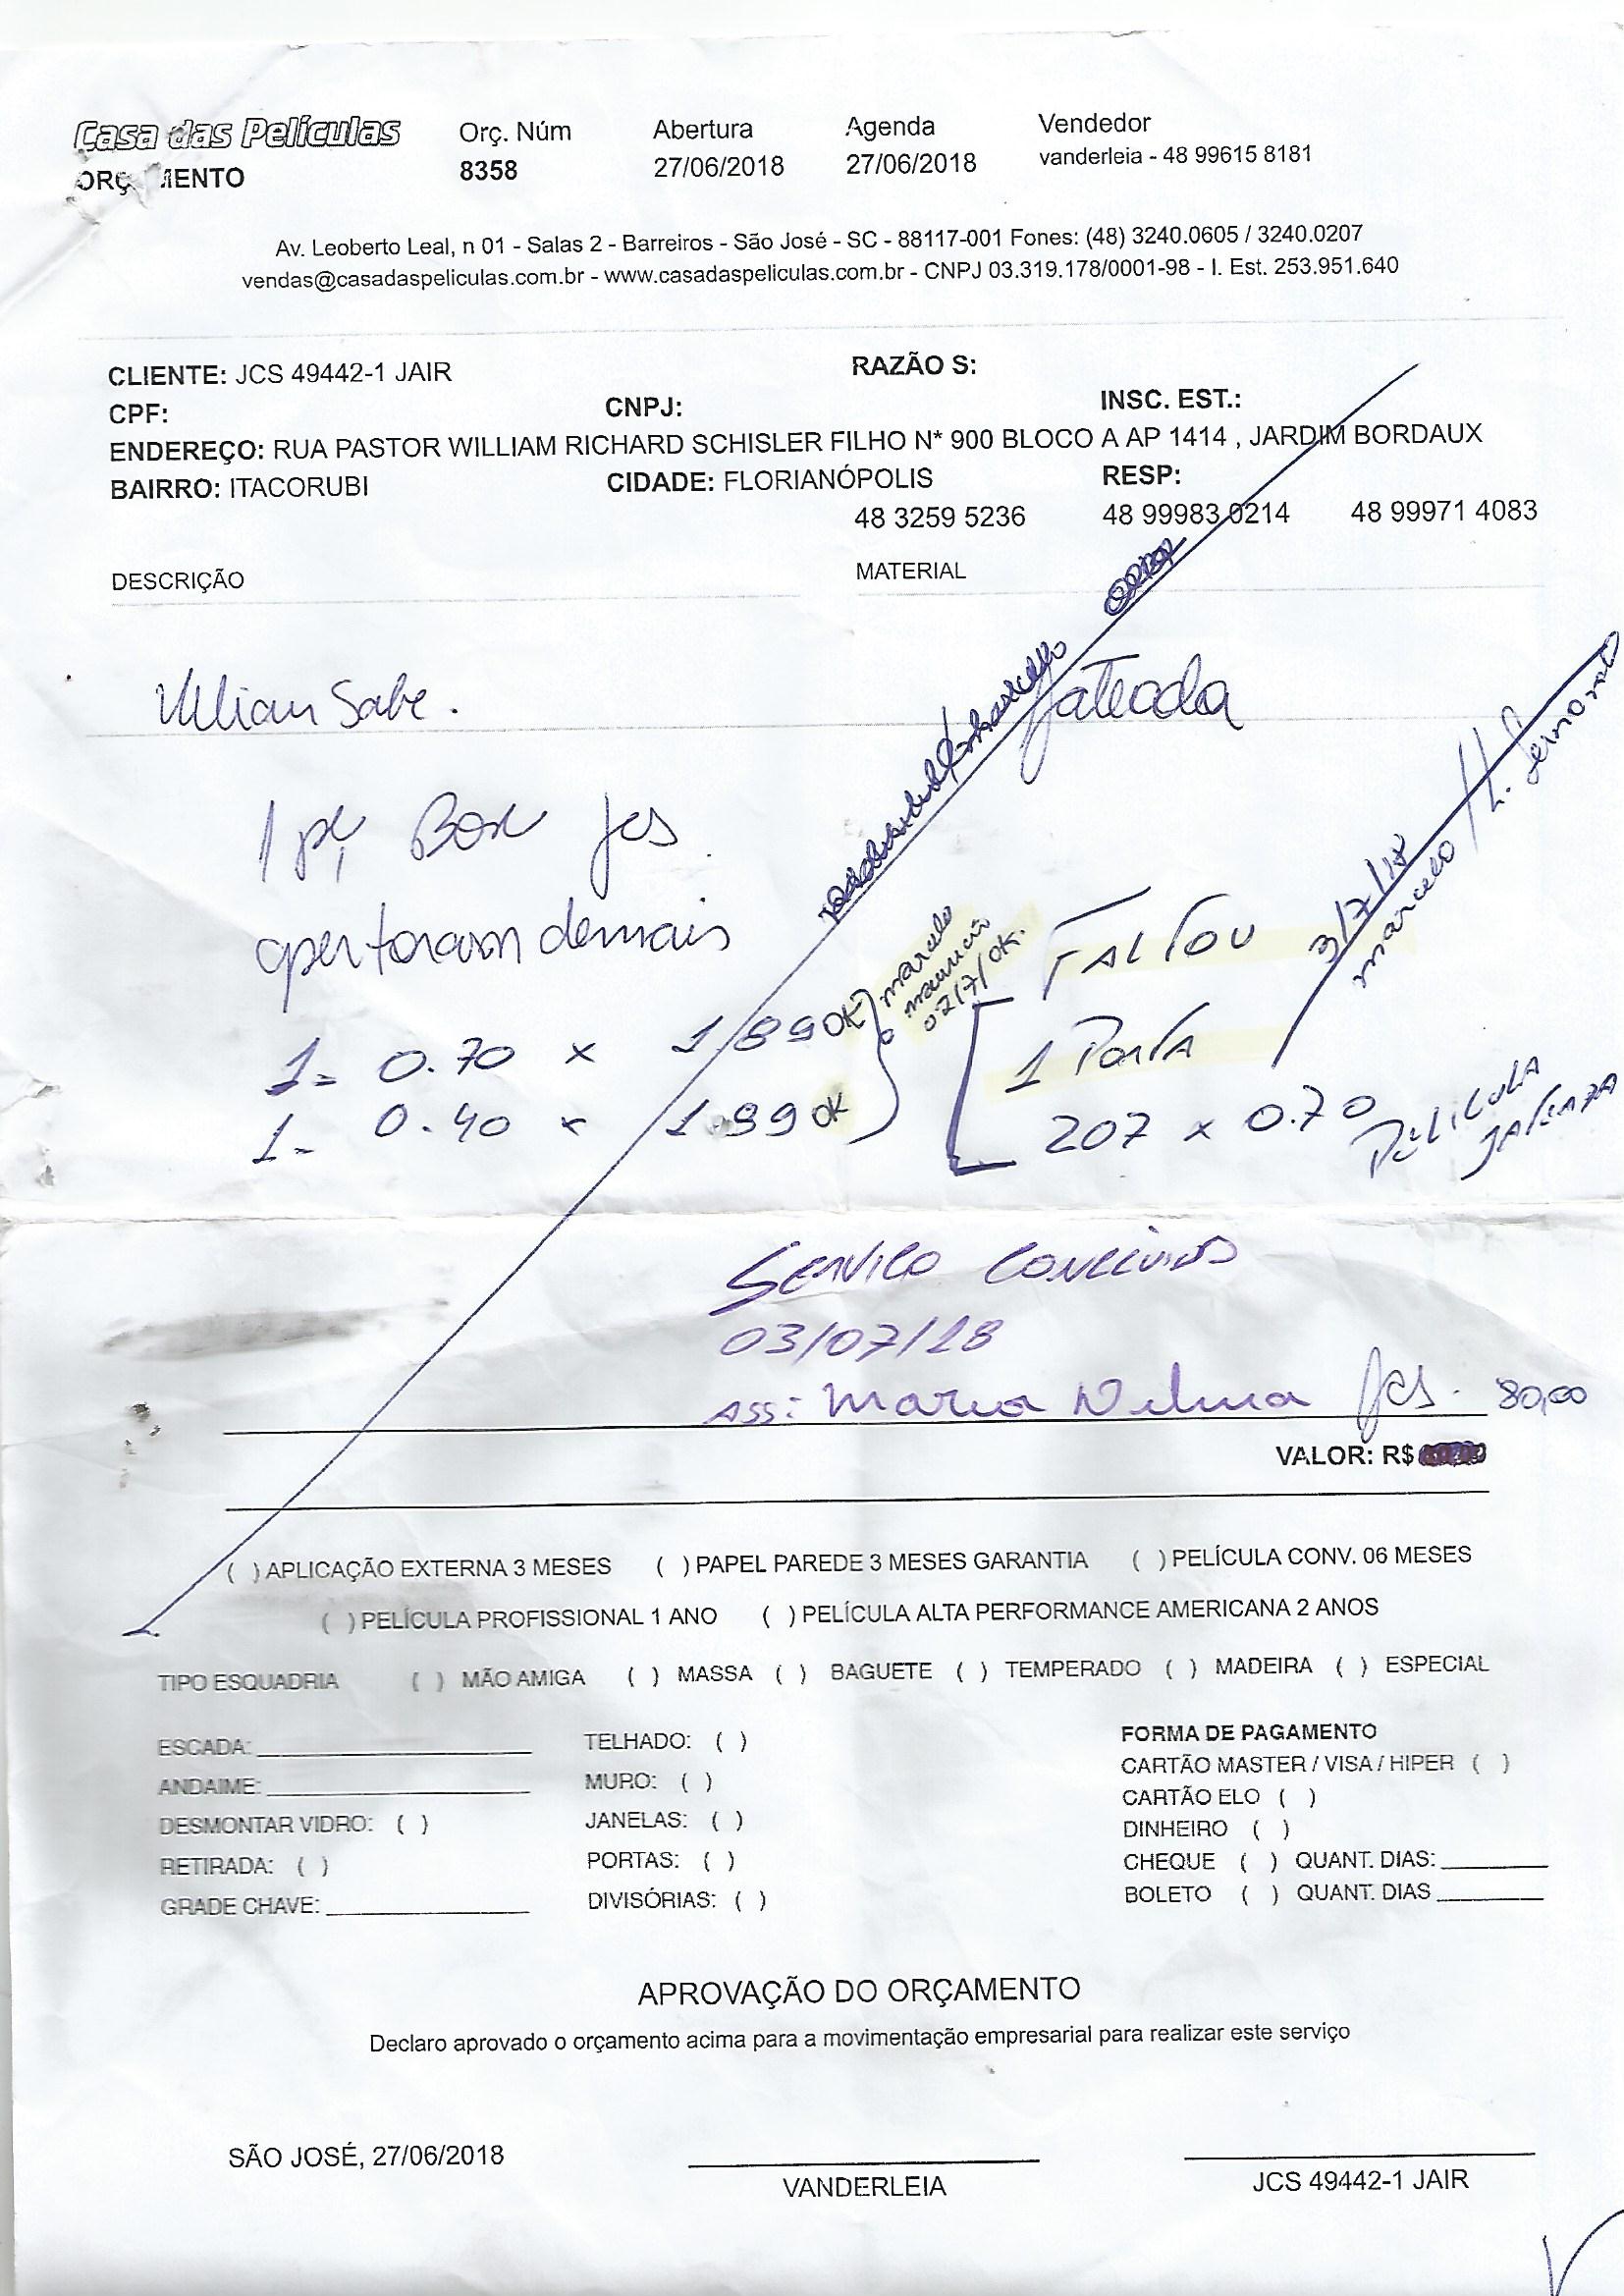 Casa das Películas Orç. Núm Abertura Agenda Vendedor
ORÇ MENTO 8358 27/06/2018 27/06/2018 vanderleia - 48 99615 8181
Av. Leoberto Leal, n 01 - Salas 2 - Barreiros - São José - SC - 88117-001 Fones: (48) 3240.0605 / 3240.0207
vendas@casadaspeliculas.com.br - www.casadaspeliculas.com.br - CNPJ 03.319.178/0001-98 - I. Est. 253.951.640
CLIENTE: JCS 49442-1 JAIR RAZÃO S:
CPF: CNPJ: INSC. EST.:
ENDEREÇO: RUA PASTOR WILLIAM RICHARD SCHISLER FILHO N* 900 BLOCO A AP 1414 , JARDIM BORDAUX
BAIRRO: ITACORUBI CIDADE: FLORIANÓPOLIS RESP:
48 3259 5236 48 99983 0214 48 99971 4083
DESCRIÇÃO MATERIAL
Sabe. Jateada
1 pç Box jcs
apertaram demais
marcelo
02/7/OK.
FALTOU
3/7/18
marcelo
1 = 0.70 x 1.89 OK
1 = 0.40 x 1.99 OK
1 Porta
207 x 0.70 Película
Serviço Concluido
03/07/18
Ass: Maria Nelma jcs. 80,00
VALOR: R$
( ) APLICAÇÃO EXTERNA 3 MESES ( ) PAPEL PAREDE 3 MESES GARANTIA ( ) PELÍCULA CONV. 06 MESES
( ) PELÍCULA PROFISSIONAL 1 ANO ( ) PELÍCULA ALTA PERFORMANCE AMERICANA 2 ANOS
TIPO ESQUADRIA ( ) MÃO AMIGA ( ) MASSA ( ) BAGUETE ( ) TEMPERADO ( ) MADEIRA ( ) ESPECIAL
ESCADA: TELHADO: ( ) FORMA DE PAGAMENTO
ANDAIME: MURO: ( ) CARTÃO MASTER / VISA / HIPER ( )
DESMONTAR VIDRO: ( ) JANELAS: ( ) CARTÃO ELO ( )
RETIRADA: ( ) PORTAS: ( ) DINHEIRO ( )
GRADE CHAVE: DIVISÓRIAS: ( ) CHEQUE ( ) QUANT. DIAS:
BOLETO ( ) QUANT. DIAS
APROVAÇÃO DO ORÇAMENTO
Declaro aprovado o orçamento acima para a movimentação empresarial para realizar este serviço
SÃO JOSÉ, 27/06/2018
VANDERLEIA JCS 49442-1 JAIR